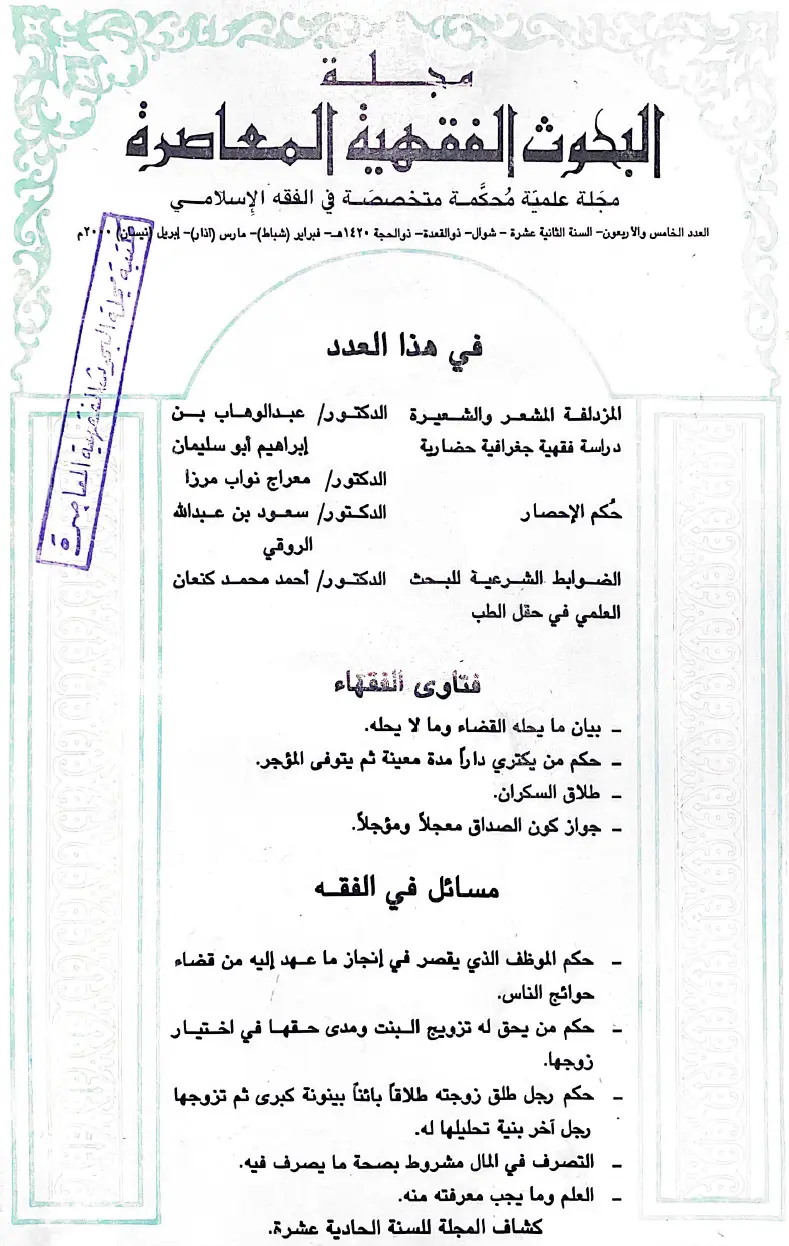 مجلة
البحوث الفقهية المعاصرة
مجَلة علميَة مُحكَّمة متخصصَة في الفقه الإسلامي
العدد الخامس والأربعون- السنة الثانية عشرة - شوال- ذوالقعدة- ذوالحجة ١٤٢٠هـ- فبراير (شباط)- مارس (آذار)- إبريل (نيسان) ٢٠٠٠م
مكتبة مجلة البحوث الفقهية المعاصرة
في هذا العدد
المزدلفة المشعر والشعيرة الدكتور/ عبدالوهاب بن
دراسة فقهية جغرافية حضارية إبراهيم أبو سليمان
الدكتور/ معراج نواب مرزا
حُكم الإحصار الدكتور/ سعود بن عبدالله
الروقي
الضوابط الشرعية للبحث الدكتور/ أحمد محمد كنعان
العلمي في حقل الطب
فتاوى الفقهاء
- بيان ما يحله القضاء وما لا يحله.
- حكم من يكتري داراً مدة معينة ثم يتوفى المؤجر.
- طلاق السكران.
- جواز كون الصداق معجلاً ومؤجلاً.
مسائل في الفقه
- حكم الموظف الذي يقصر في إنجاز ما عهد إليه من قضاء
حوائج الناس.
- حكم من يحق له تزويج البنت ومدى حقها في اختيار
زوجها.
- حكم رجل طلق زوجته طلاقاً بائناً بينونة كبرى ثم تزوجها
رجل آخر بنية تحليلها له.
- التصرف في المال مشروط بصحة ما يصرف فيه.
- العلم وما يجب معرفته منه.
كشاف المجلة للسنة الحادية عشرة.